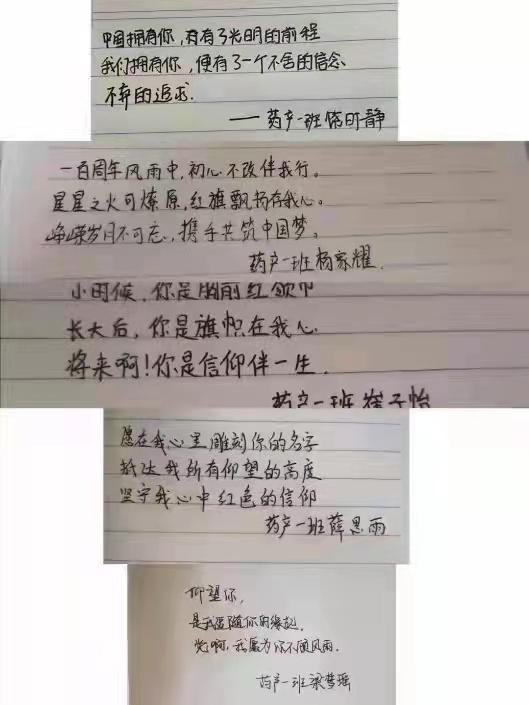 中国拥有你,有有了光明的前程
我们拥有你,便有了一个不舍的信念
不弃的追求.
——药产一班 静
一百周年风雨中,初心不改伴我行。
星星之火可燎原,红旗飘扬在我心。
峥嵘岁月不可忘,携手共筑中国梦。
药产一班杨家耀.
小时候,你是胸前红领巾
长大后,你是旗帜在我心
将来啊!你是信仰伴一生.
药产一班崔子怡
愿在我心里雕刻你的名字
抵达我所有仰望的高度
坚守我心中红色的信仰
药产一班薛思雨
仰望你,
是我追随你的缘起.
党啊,我愿为你不顾风雨.
药产一班梁梦瑶